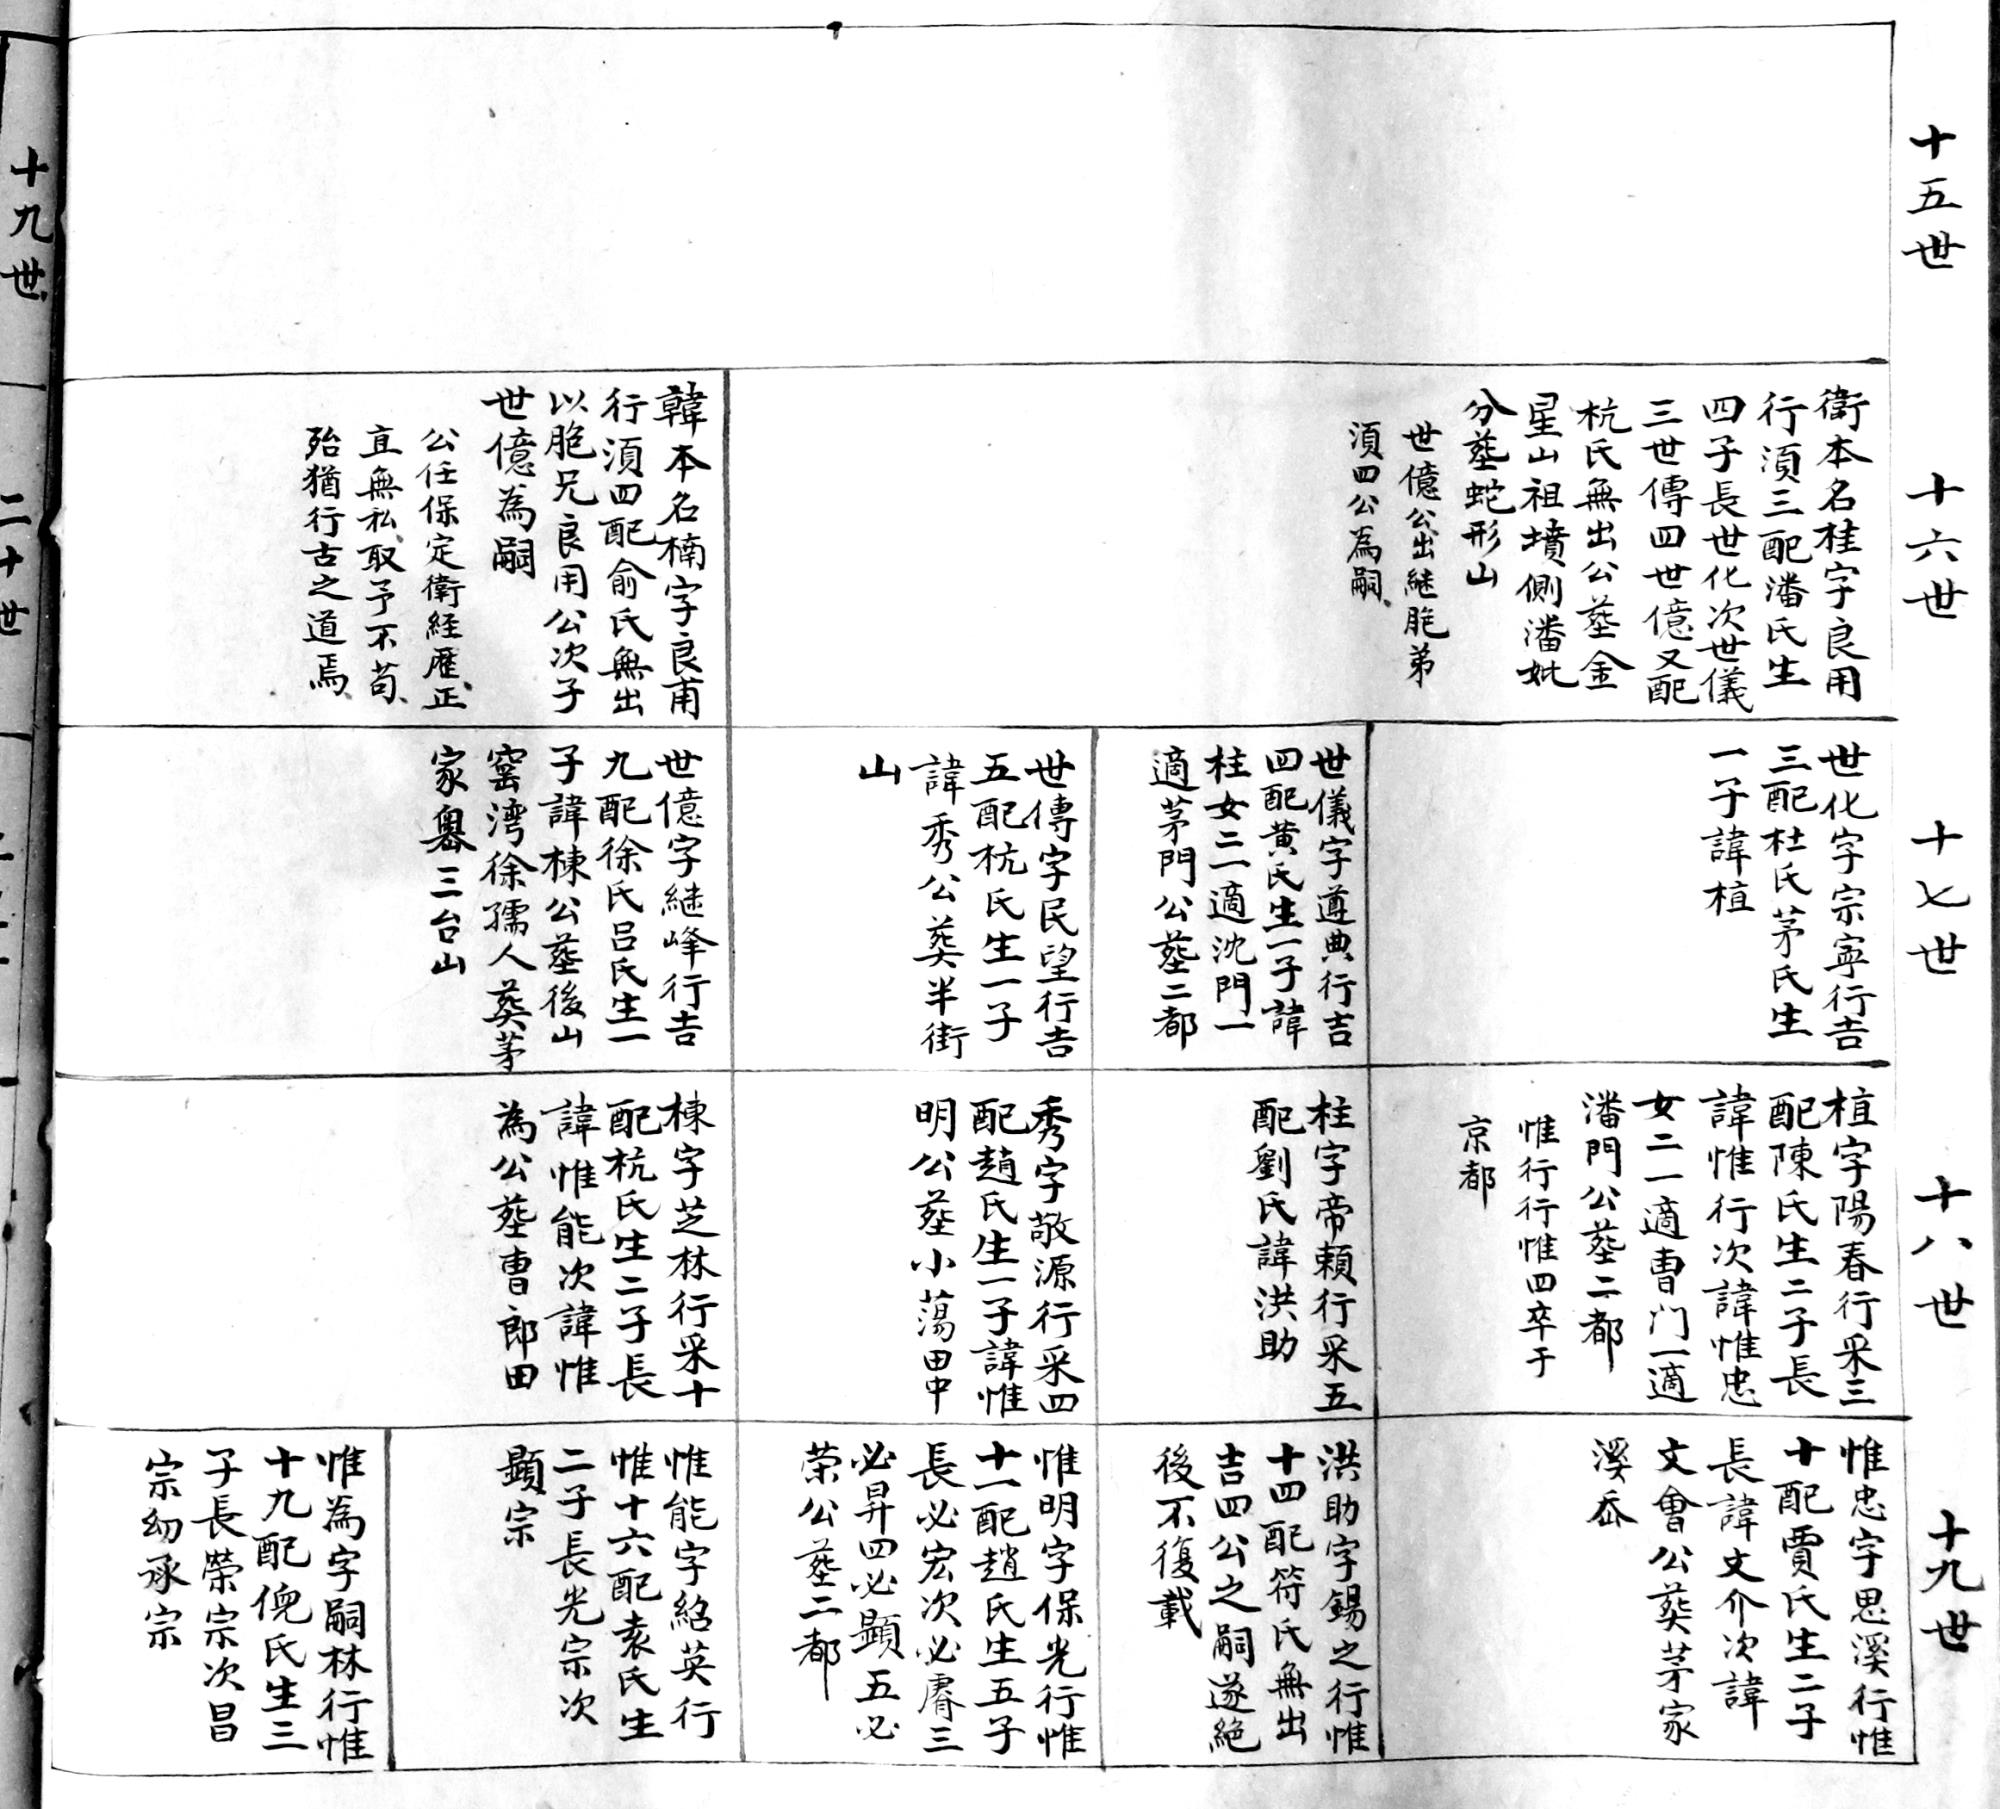 十五世
十六世
衛本名桂字良用
行湏三配潘氏生
四子長世化次世儀
三世傳四世億又配
杭氏無出公塟金
星山祖墳側潘妣
分塟蛇形山
世億公出継胞弟
湏四公為嗣
韓本名楠字良甫
行湏四配俞氏無出
以胞兄良用公次子
世億為嗣
公任保定衛經歷正
直無私取予不苟
殆猶行古之道焉
十七世
世化字宗寜行吉
三配杜氏茅氏生
一子諱植
世儀字遵典行吉
四配黄氏生一子諱
柱女二一適沈門一
適茅門公塟二都
世傳字民望行吉
五配杭氏生一子
諱秀公葬半街
山
世億字継峰行吉
九配徐氏吕氏生一
子諱棟公塟後山
窑湾徐孺人葬茅
家奥三台山
十八世
植字陽春行采三
配陳氏生二子長
諱惟行次諱惟忠
女二一適曹门一適
潘門公塟二都
惟行行惟四卒于
京都
柱字帝賴行采五
配劉氏諱洪助
秀字敬源行采四
配趙氏生一子諱惟
明公塟小蕩田中
棟字芝林行采十
配杭氏生二子長
諱惟能次諱惟
為公塟曹郎田
十九世
惟忠字思溪行惟
十配賈氏生二子
長諱文介次諱
文會公葬茅家
溪岙
洪助字錫之行惟
十四配符氏無出
吉四公之嗣遂絶
後不復載
惟明字保光行惟
十一配趙氏生五子
長必宏次必睿三
必昇四必顯五必
荣公塟二都
惟能字紹英行
惟十六配袁氏生
二子長光宗次
顯宗
惟為字嗣林行惟
十九配倪氏生三
子長榮宗次昌
宗幼承宗
十九世
二十世